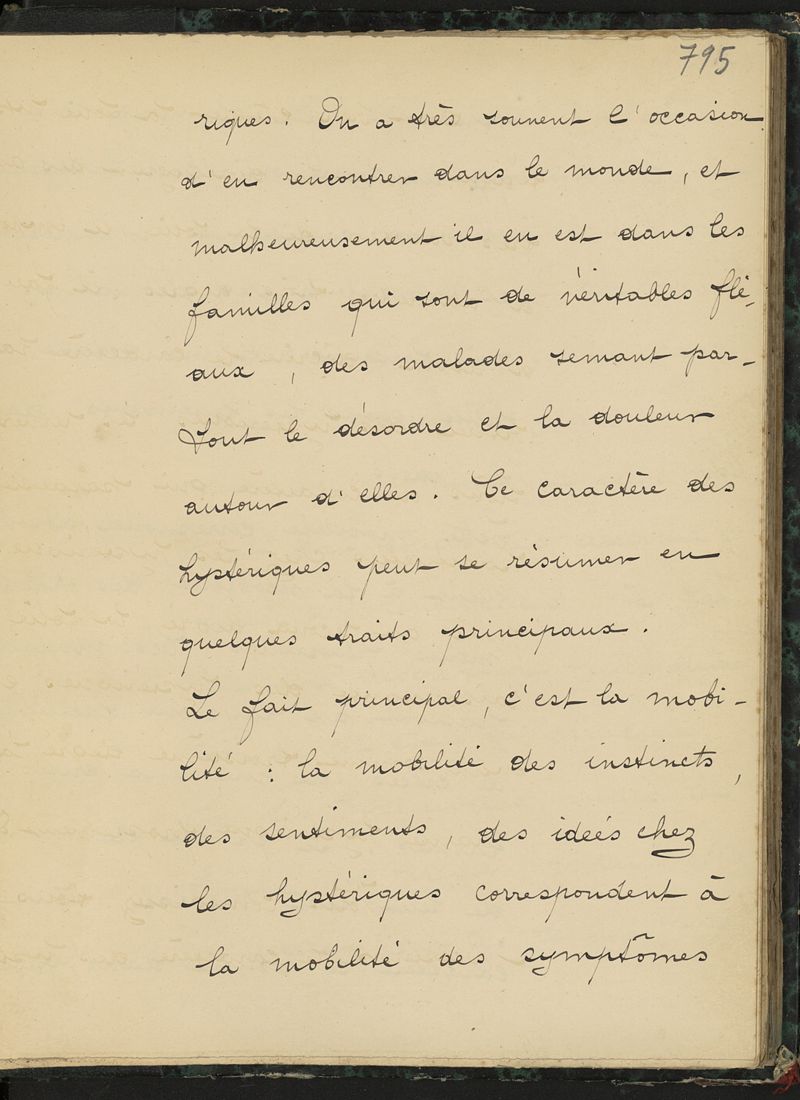 795
riques. On a très souvent l'occasion
d'en rencontrer dans le monde, et
malheureusement il en est dans les
familles qui sont de véritables flé-
aux, des malades semant par-
tout le désordre et la douleur
autour d'elles. Ce caractère des
hystériques peut se résumer en
quelques traits principaux.
Le fait principal, c'est la mobi-
lité : la mobilité des instincts,
des sentiments, des ideés chez
les hystériques correspondent à
la mobilité des symptômes